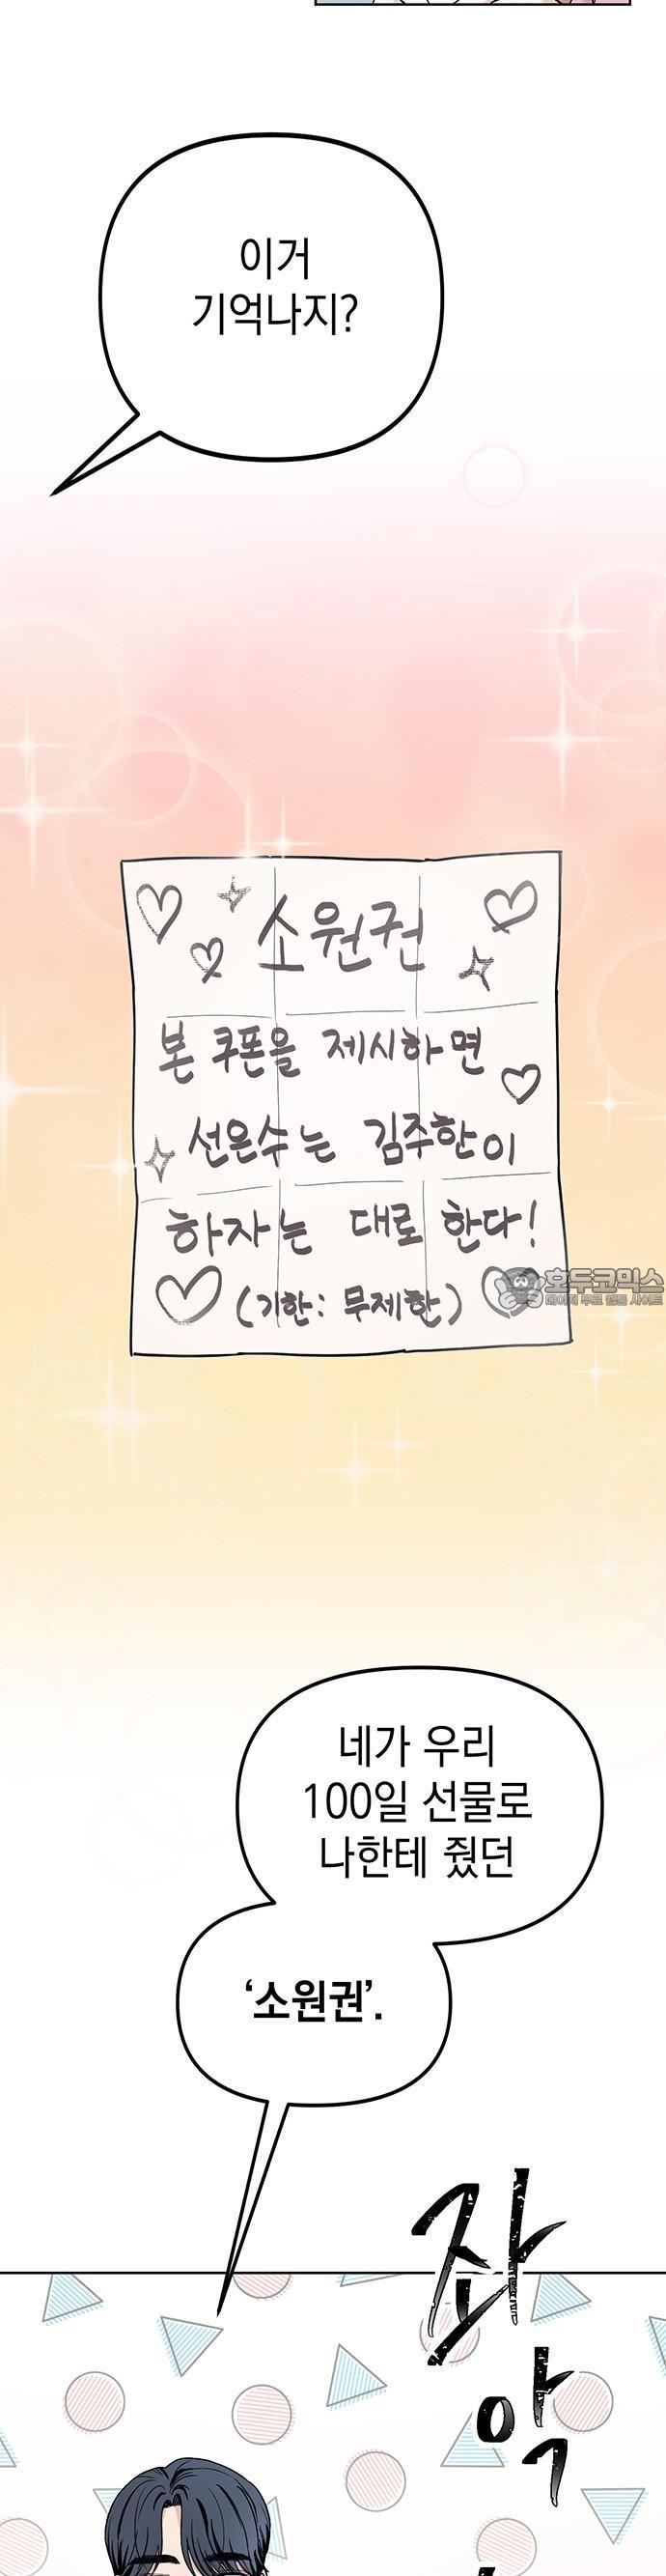 이거
기억나지?
소원권
본 쿠폰을 제시하면
선은수는 김주한이
하자는 대로 한다!
(기한: 무제한)
호두코믹스
네가 우리
100일 선물로
나한테 줬던
‘소원권’.
좌
악